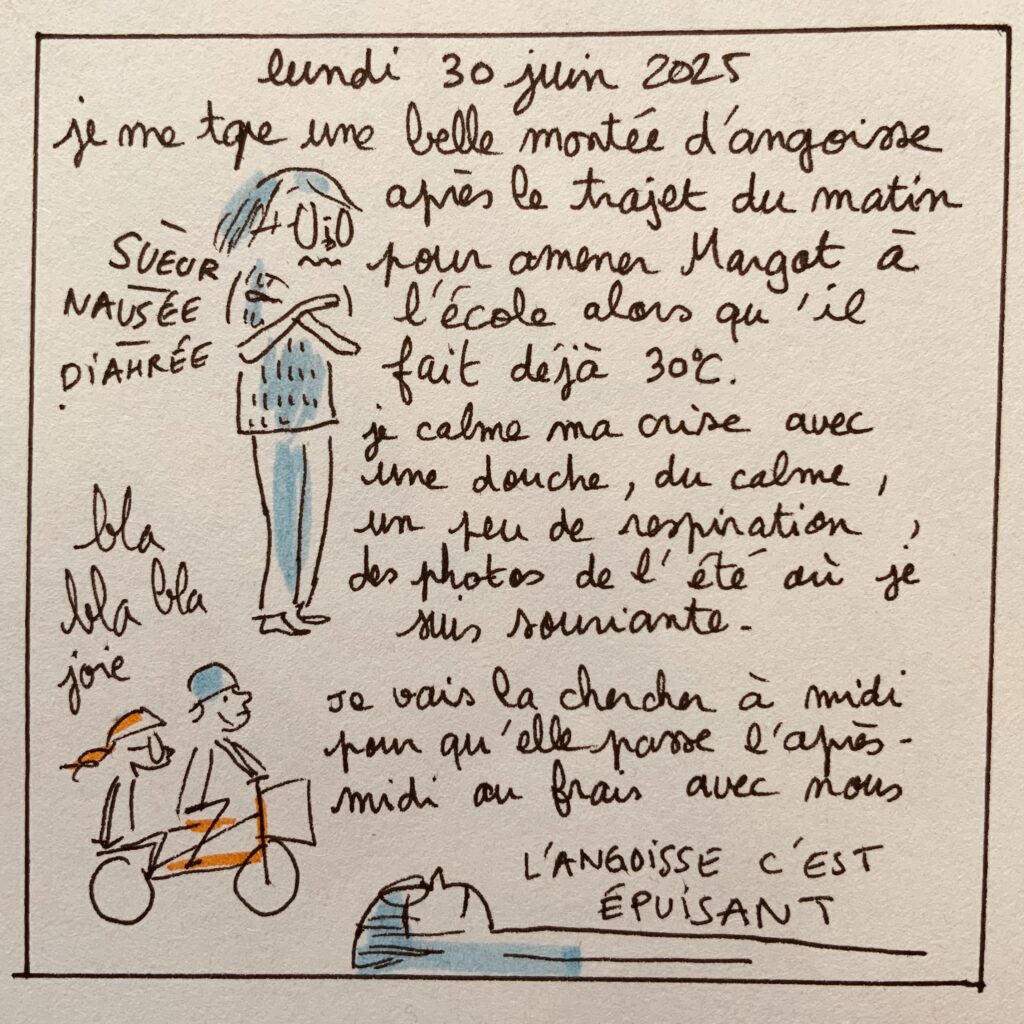 lundi 30 juin 2025
je me tape une belle montée d'angoisse
après le trajet du matin
pour amener Margot à
l'école alors qu'il
fait déjà 30°C.
SUEUR
NAUSÉE
DIAHRÉE
je calme ma crise avec
une douche, du calme,
un peu de respiration,
des photos de l'été où je
suis souriante.
bla
bla bla
joie
Je vais la chercher à midi
pour qu'elle passe l'après-
midi au frais avec nous
L'ANGOISSE C'EST
ÉPUISANT